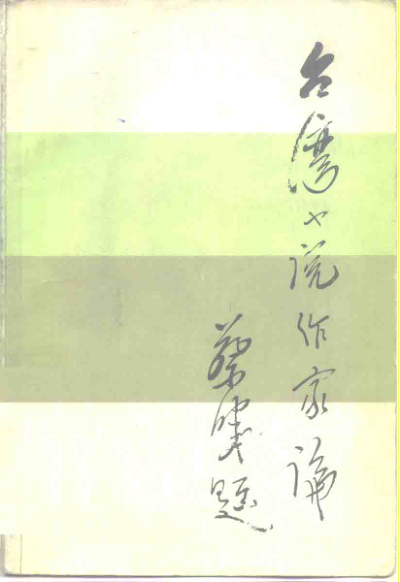 台湾小说作家论
蔡题